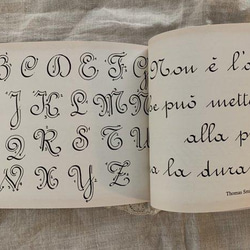 B C D E F G
J K L M N
Q R S T U
W X Y Z
Non è l'a
se può mette
alla p
a la dura
Thomas